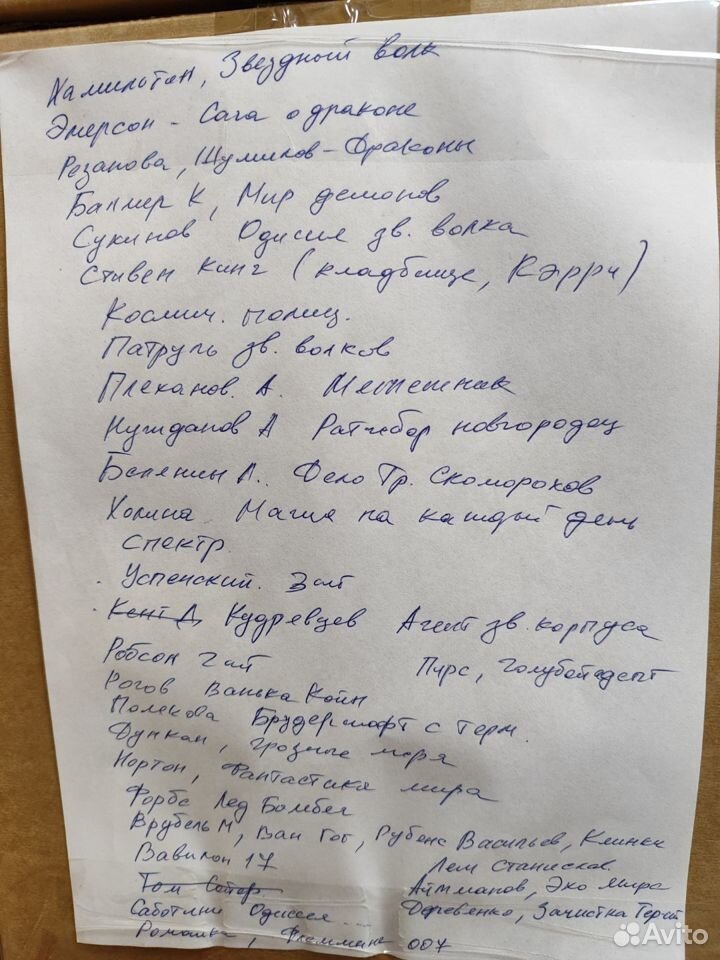 Хамилотан, Звездный волк
Эмерсон - Сага о драконе
Резанова, Шумилов - Драконы
Баллмер К, Мир демонов
Сухинов Одисея зв. волка
Стивен Кинг (кладбище, Кэрри)
Космич. полиц.
Патруль зв. волков
Плеханов. А. Мятежник
Нуждапов А Ратибор новгородец
Белянин А.. Дело Тр. Скоморохов
Холина Магия на каждый день
Спектр.
Успенский. 3 шт
Кент Д, Кудревцев Агент зв. корпуса
Робсон 2 шт
Пирс, Голубой агент
Рогов Ванька Коин
Полякова Брудершафт с терм.
Дункан, грозные моря
Нортон, Фантастика мира
Форбс Лед Бомбей
Врубель М, Ван Гог, Рубенс Васильев, Клинки
Вавилон 17
Лем Станислав
Том Сойер
Айтманов, Эхо мира
Саботини Одиссея
Деревянко, Зачистка Territ
Романы, Флеминг 007
Avito